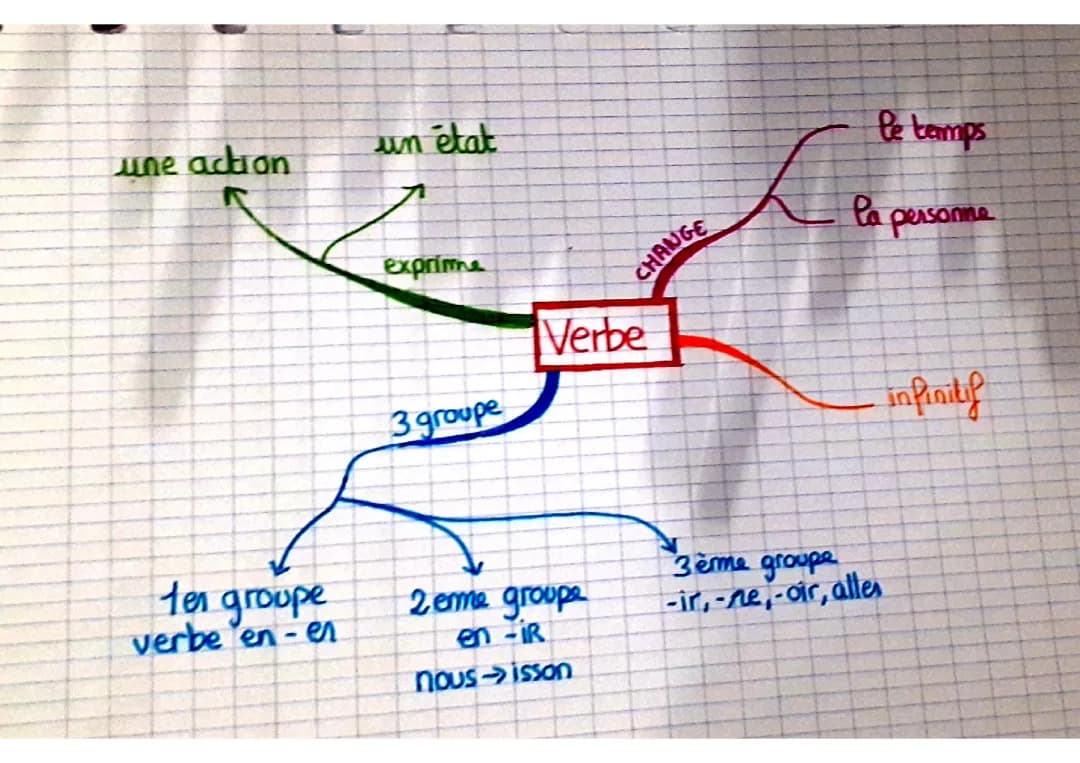 une action
un état
exprime
CHANGE
le temps
la personne
Verbe
infinitif
3 groupe
1er groupe
verbe en - er
2eme groupe
en -iR
nous → isson
3ème groupe
-ir, -re, -oir, aller